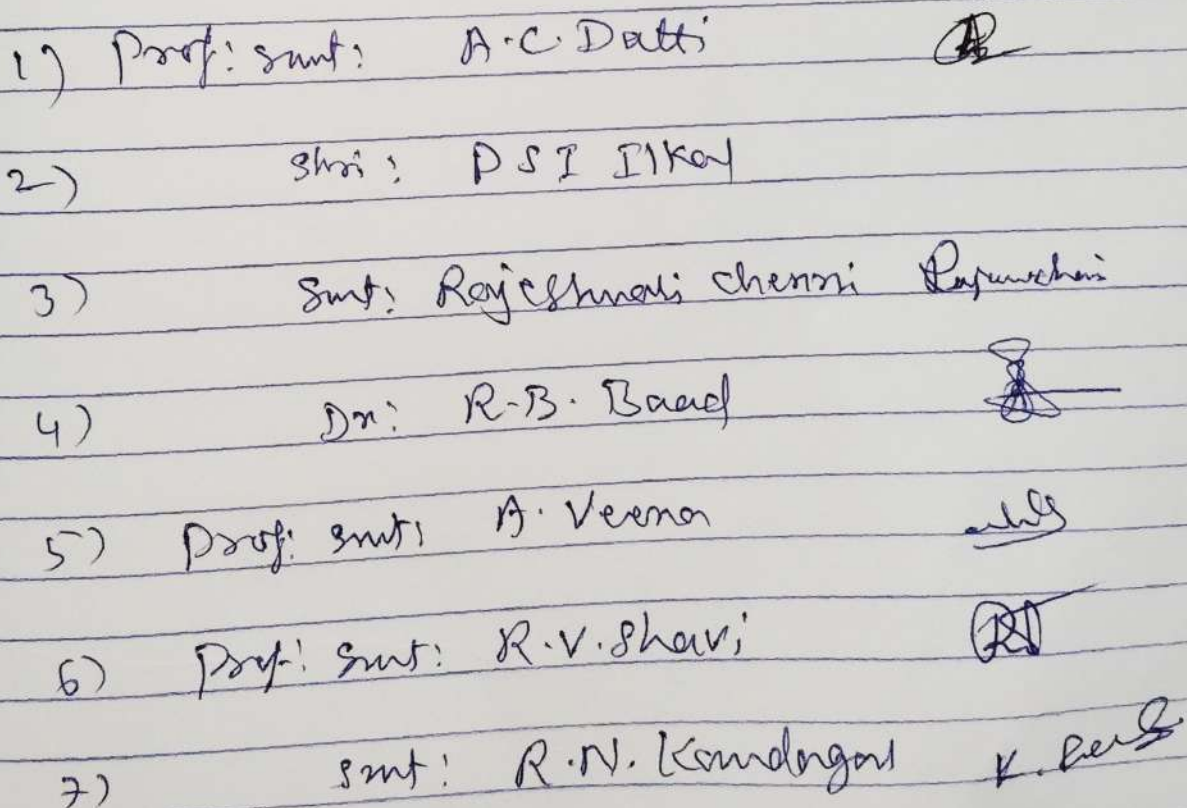 1) Prof: Smt: A.C. Datti
2) Shri: PSI Ilkal
3) Smt: Rajeshwari Chenni
4) Dr: R.B. Baad
5) Prof: Smt: A. Veena
6) Prof: Smt: R.V. Shavi
7) Smt: R.N.